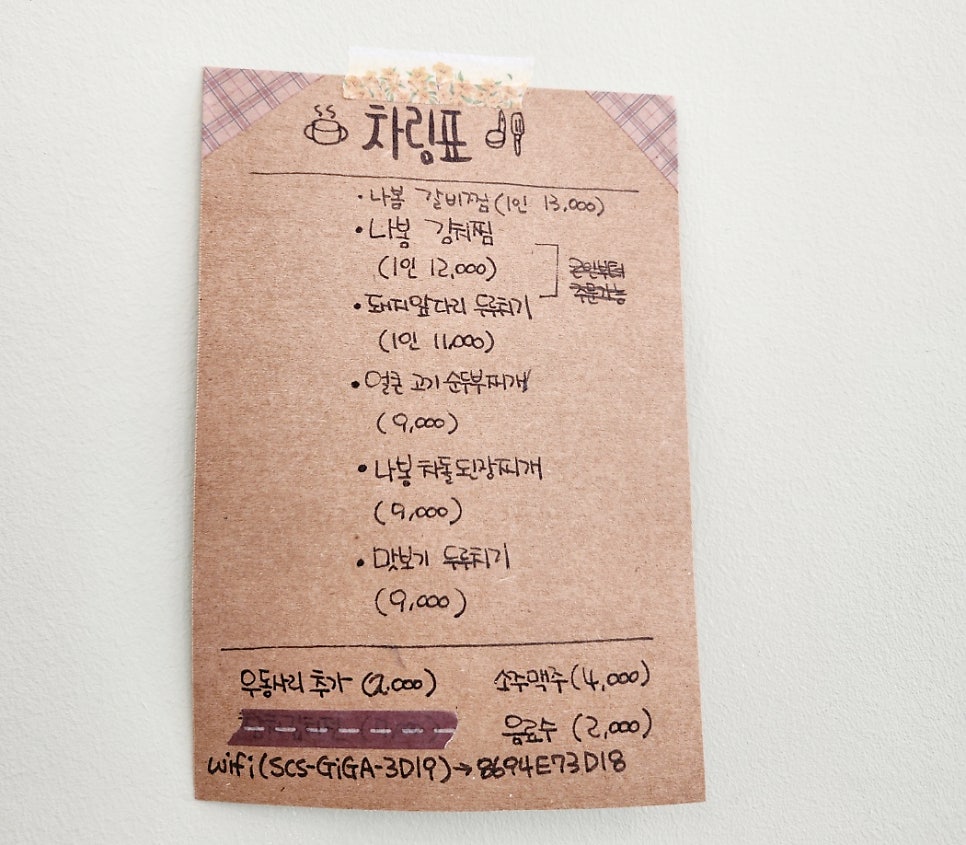 차림표
• 나봄 갈비찜 (1인 13,000)
• 나봉 김치찜
(1인 12,000)
2인부터
주문가능
• 돼지앞다리 두루치기
(1인 11,000)
• 얼큰 고기 순두부찌개
(9,000)
• 나봉 차돌된장찌개
(9,000)
• 맛보기 두루치기
(9,000)
우동사리 추가 (2,000) 소주맥주 (4,000)
음료수 (2,000)
wifi (SCS-GiGA-3D19) → 8694E73D18